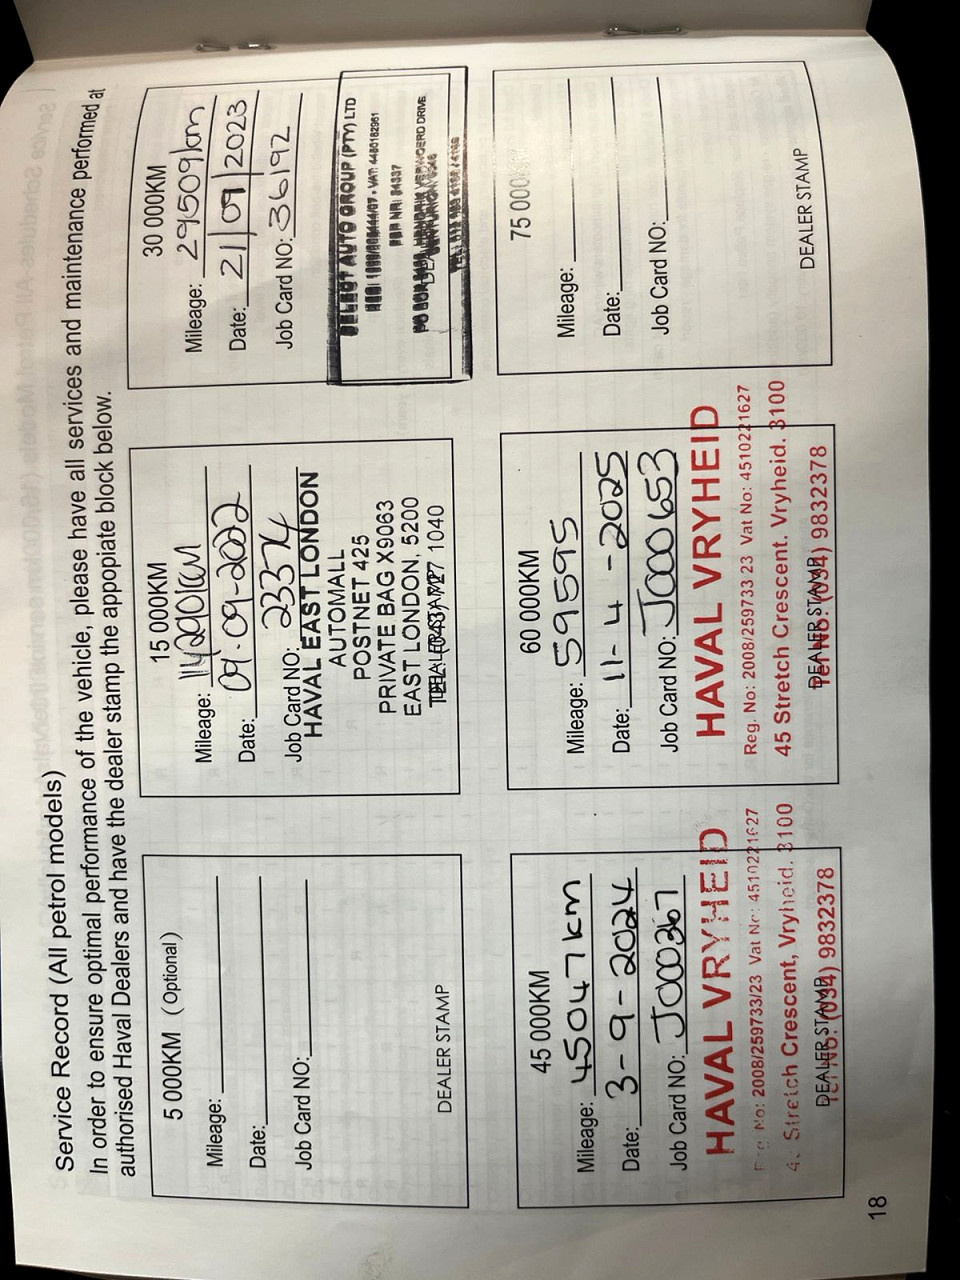 Service Record (All petrol models)
In order to ensure optimal performance of the vehicle, please have all services and maintenance performed at
authorised Haval Dealers and have the dealer stamp the appopiate block below.
5 000KM (Optional)
Mileage:
Date:
Job Card NO:
DEALER STAMP
15 000KM
Mileage: 14290KM
Date: 09-09-2022
Job Card NO: 23374
HAVAL EAST LONDON
AUTOMALL
POSTNET 425
PRIVATE BAG X9063
EAST LONDON, 5200
DEALER STAMP
30 000KM
Mileage: 29509km
Date: 21/09/2023
Job Card NO: 36192
SELECT AUTO GROUP (PTY) LTD
VAT: 4480182961
HENDRIK VERWOERD DRIVE
45 000KM
Mileage: 45047km
Date: 3-9-2024
Job Card NO: J000367
HAVAL VRYHEID
Reg. No: 2008/259733/23 Vat No: 4510221627
45 Stretch Crescent, Vryheid. 3100
DEALER STAMP
Tel No: (034) 9832378
60 000KM
Mileage: 59595
Date: 11-4-2025
Job Card NO: J000653
HAVAL VRYHEID
Reg. No: 2008/259733 23 Vat No: 4510221627
45 Stretch Crescent. Vryheid. 3100
DEALER STAMP
Tel No: (034) 9832378
75 000KM
Mileage:
Date:
Job Card NO:
DEALER STAMP
18